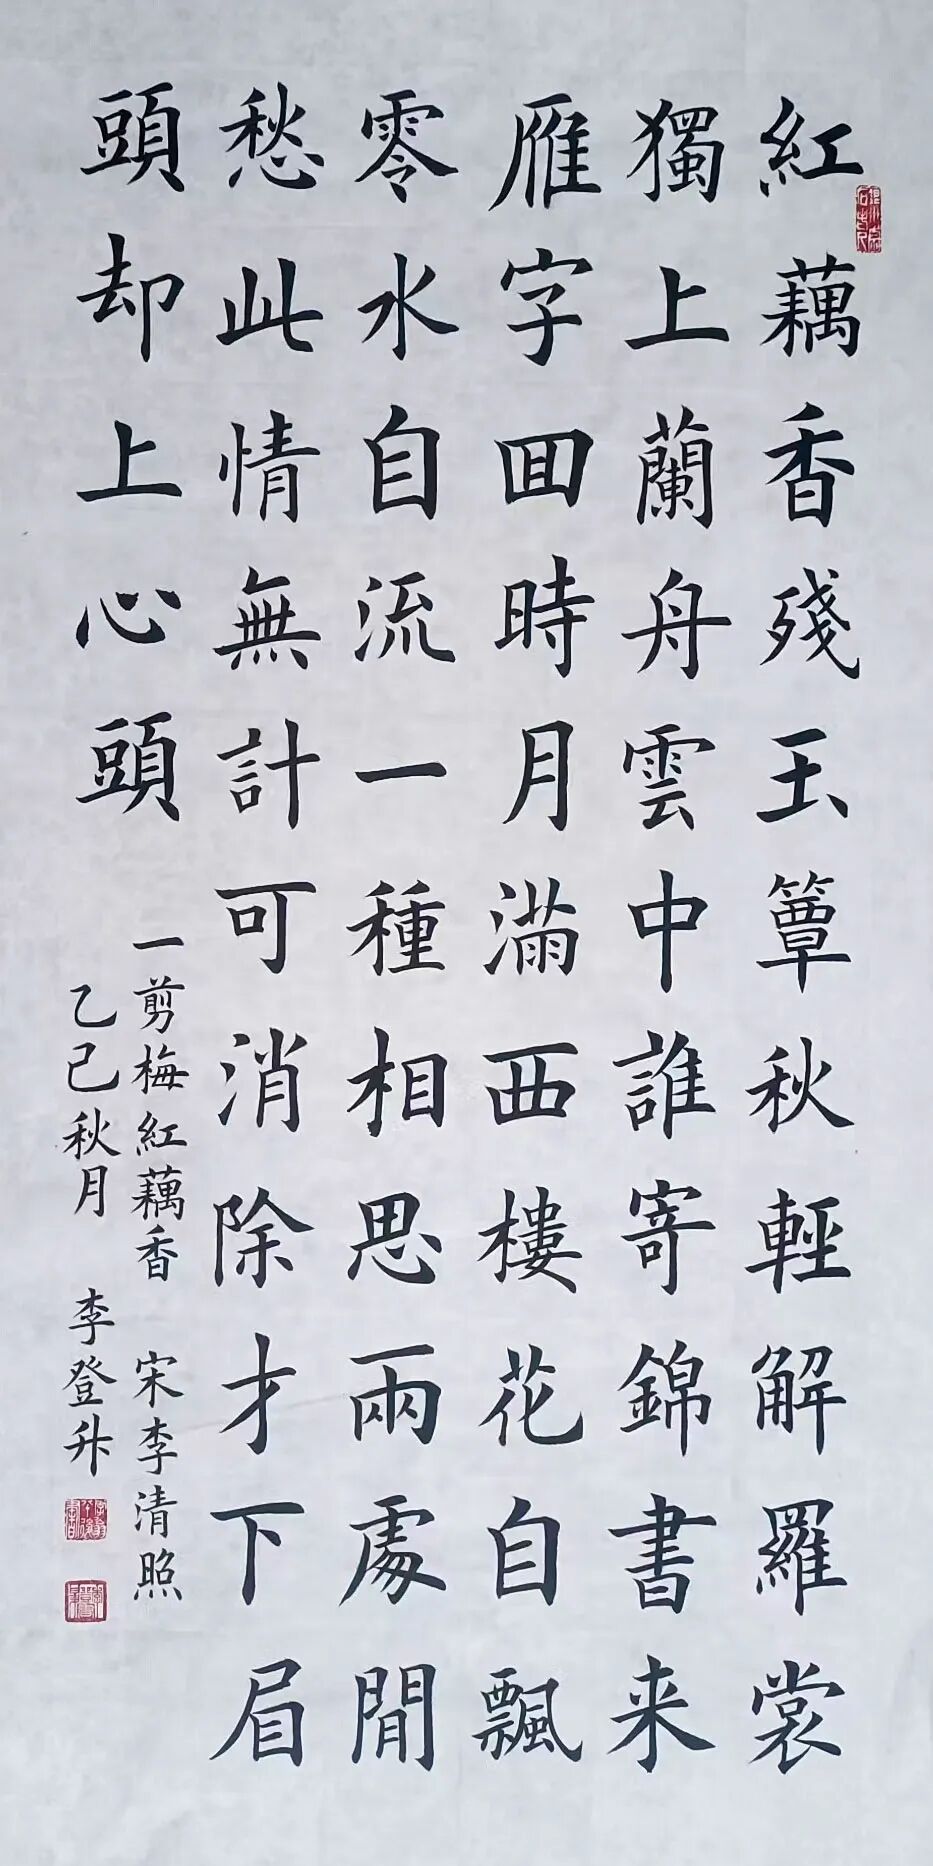 紅藕香殘玉簟秋輕解羅裳
獨上蘭舟雲中誰寄錦書来
雁字回時月滿西樓花自飄
零水自流一種相思兩處閒
愁此情無計可消除才下眉
頭却上心頭
一剪梅紅藕香 宋李清照
乙巳秋月 李登升